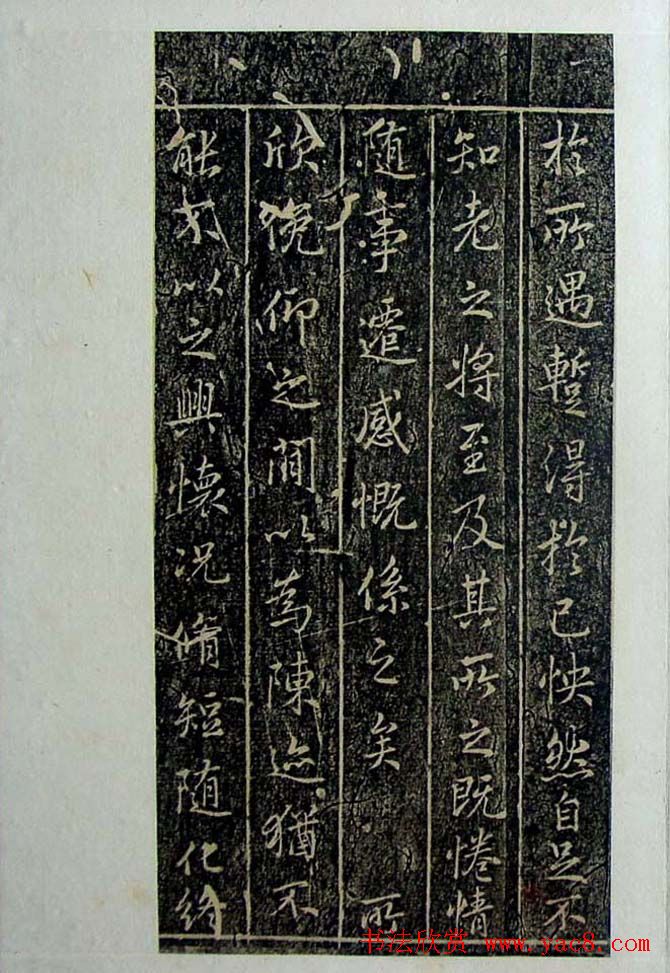 於所遇暫得於己怏然自足不
知老之將至及其所之既惓情
隨事遷感慨係之矣 所
欣俛仰之間以為陳迹猶不
能不以之興懷況脩短隨化終
书法欣赏 www.yac8.com